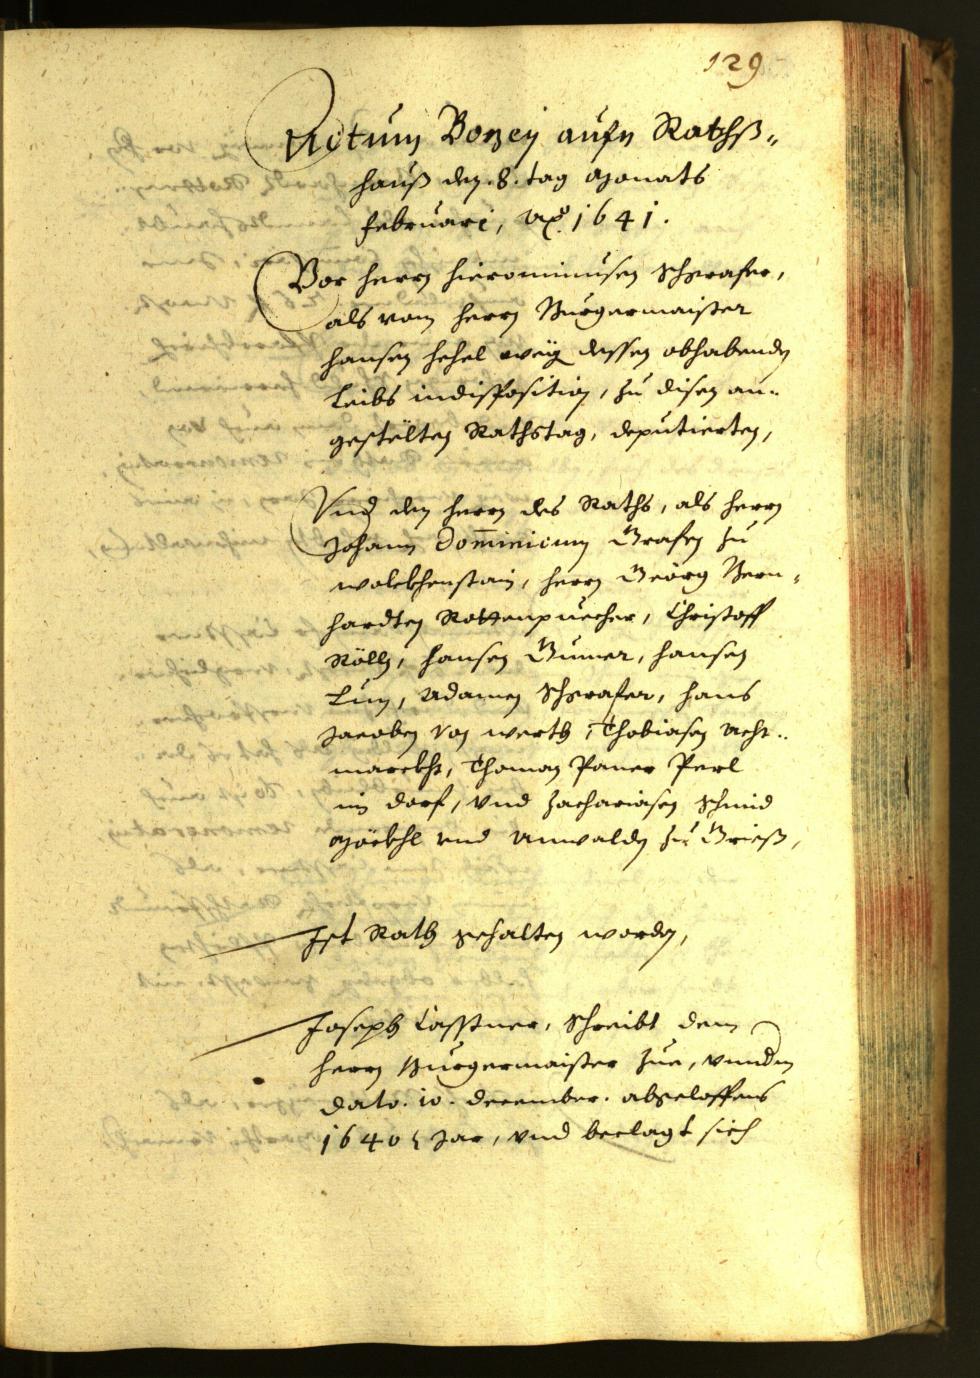 129
Actum Bozen aufm Rathß-
hauß den .8. tag Monats
Februari, Ao. 1641.
Vor herrn Hieronimusen Schrafer,
als vom herrn Burgermaister
Hansen Hehel weg dessen obhabenden
Leibs indisposition, zu disen an-
gestelten Rathstag, deputierten,
Vnd den herrn des Raths, als herrn
Johann Dominicum Grafen zu
Wolckhenstain, herrn Geörg Bern-
hardten Rottenpuecher, Christoff
Röll, Hansen Gumer, Hansen
Lun, Adamen Schrafer, Hans
Jacoben von Werth, Thobiasen Acht-
marckht, Thoman Paner Perl
im dorf, vnd Zachariasen Schmid
vnd Anwalden zu Grieß,
Ist Rath gehalten worden,
Joseph Casstner, schreibt dem
herrn Burgermaister zue, vnndern
dato .10. December. abgeloffens
1640 Jar, vnd beclagt sich